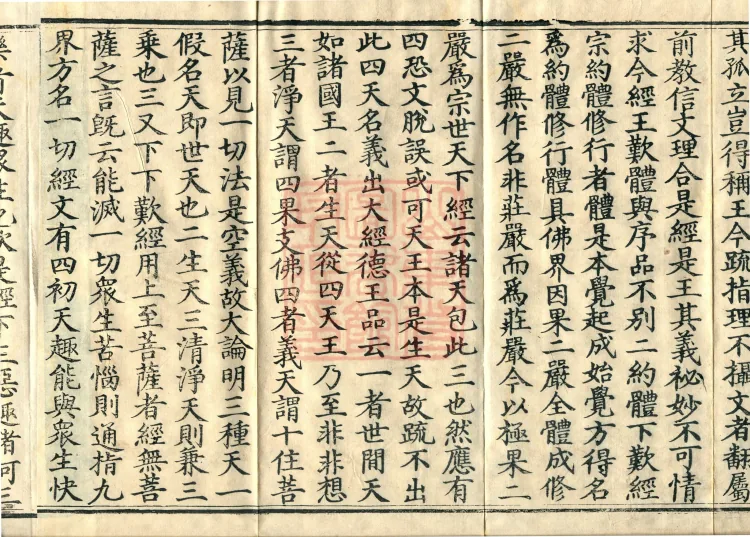 其孤立豈得稱王今疏指理不攝文者翻屬
前教信文理合是經是王其義祕妙不可情
求今經王歎體與序品不別二約體下歎經
宗約體修行者體是本覺起成始覺方得名
爲約體修行體具佛界因果二嚴全體成修
二嚴無作名非莊嚴而爲莊嚴今以極果二
嚴爲宗世天下經云諸天包此三也然應有
四恐文脫誤或可天王本是生天故疏不出
此四天名義出大經德王品云一者世間天
如諸國王二者生天從四天王乃至非非想
三者淨天謂四果支佛四者義天謂十住菩
薩以見一切法是空義故大論明三種天一
假名天即世天也二生天三清淨天則兼三
乘也三又下下歎經用上至菩薩者經無菩
薩之言旣云能滅一切衆生苦惱則通指九
界方名一切經文有四初天趣能與衆生快
樂者天趣衆生見次是經下三惡趣者可三